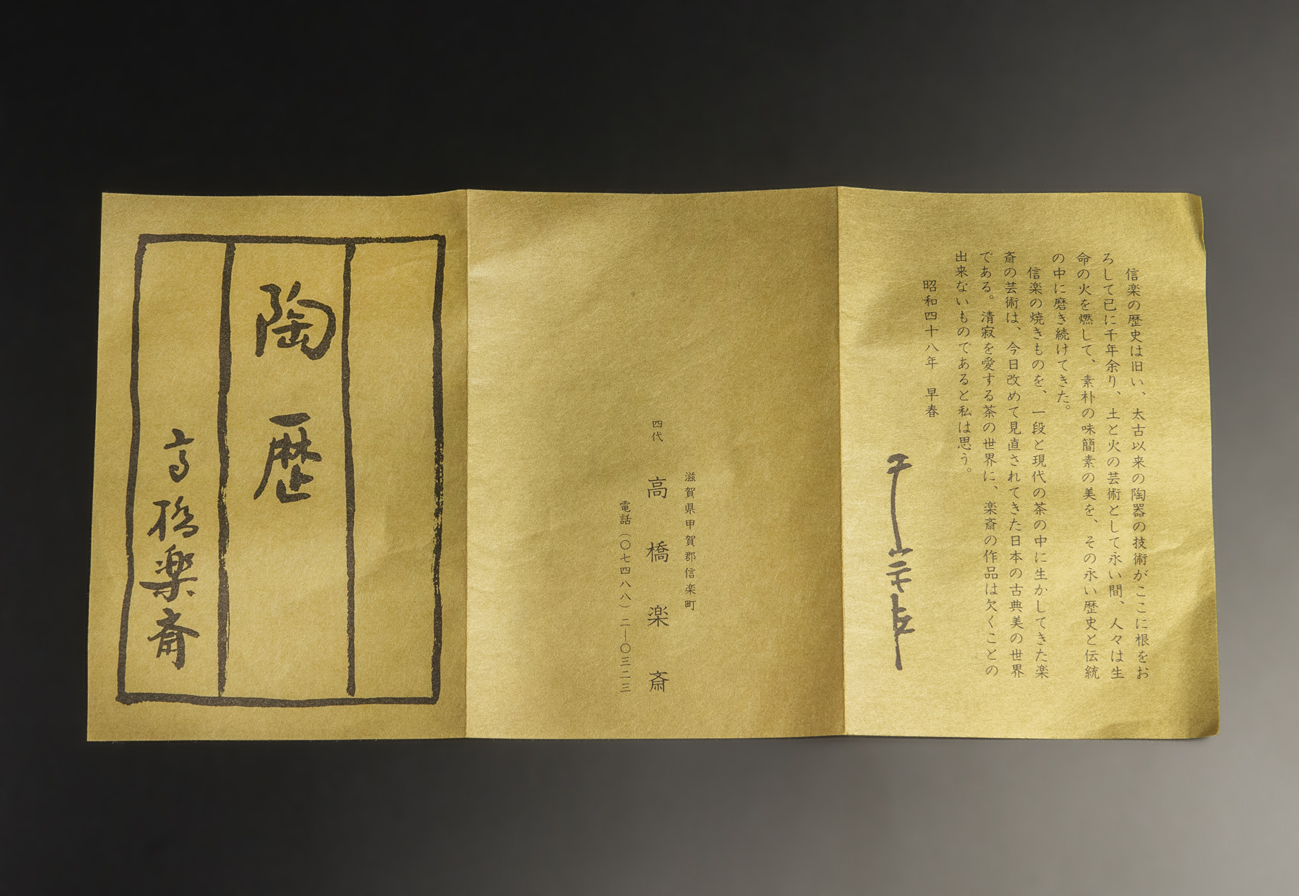 信楽の歴史は旧い、太古以来の陶器の技術がここに根をお
ろして已に千年余り、土と火の芸術として永い間、人々は生
命の火を燃して、素朴の味簡素の美を、その永い歴史と伝統
の中に磨き続けてきた。
信楽の焼きものを、一段と現代の茶の中に生かしてきた楽
斎の芸術は、今日改めて見直されてきた日本の古典美の世界
である。清寂を愛する茶の世界に、楽斎の作品は欠くことの
出来ないものであると私は思う。
昭和四十八年　早春
滋賀県甲賀郡信楽町
四代　高橋楽斎
電話(〇七四八八)二―〇三二三
陶歴
高橋楽斎